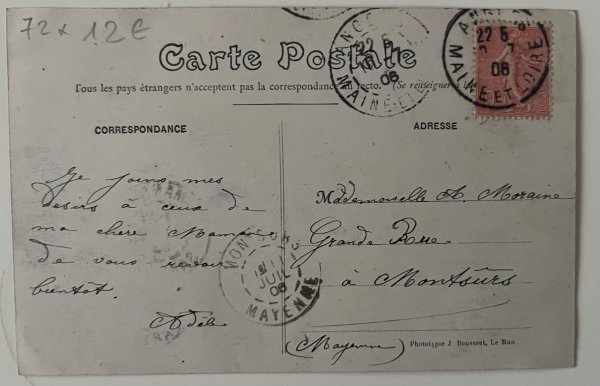 72x 12€
Carte Postale
Tous les pays étrangers n'acceptent pas la correspondance au recto. (Se renseigner à la
CORRESPONDANCE
ADRESSE
Je joins mes
désirs à ceux de
ma chère Maman
de vous revoir
bientôt.
Adèle
Mademoiselle A. Moraine
Grande Rue
à Montsûrs
(Mayenne)
Phototypie J Bouveret, Le Man
22 5
06
MAINE ET
ANGERS
22 5
06
MAINE ET LOIRE
MONTSURS
11
JUIL
06
MAYENNE